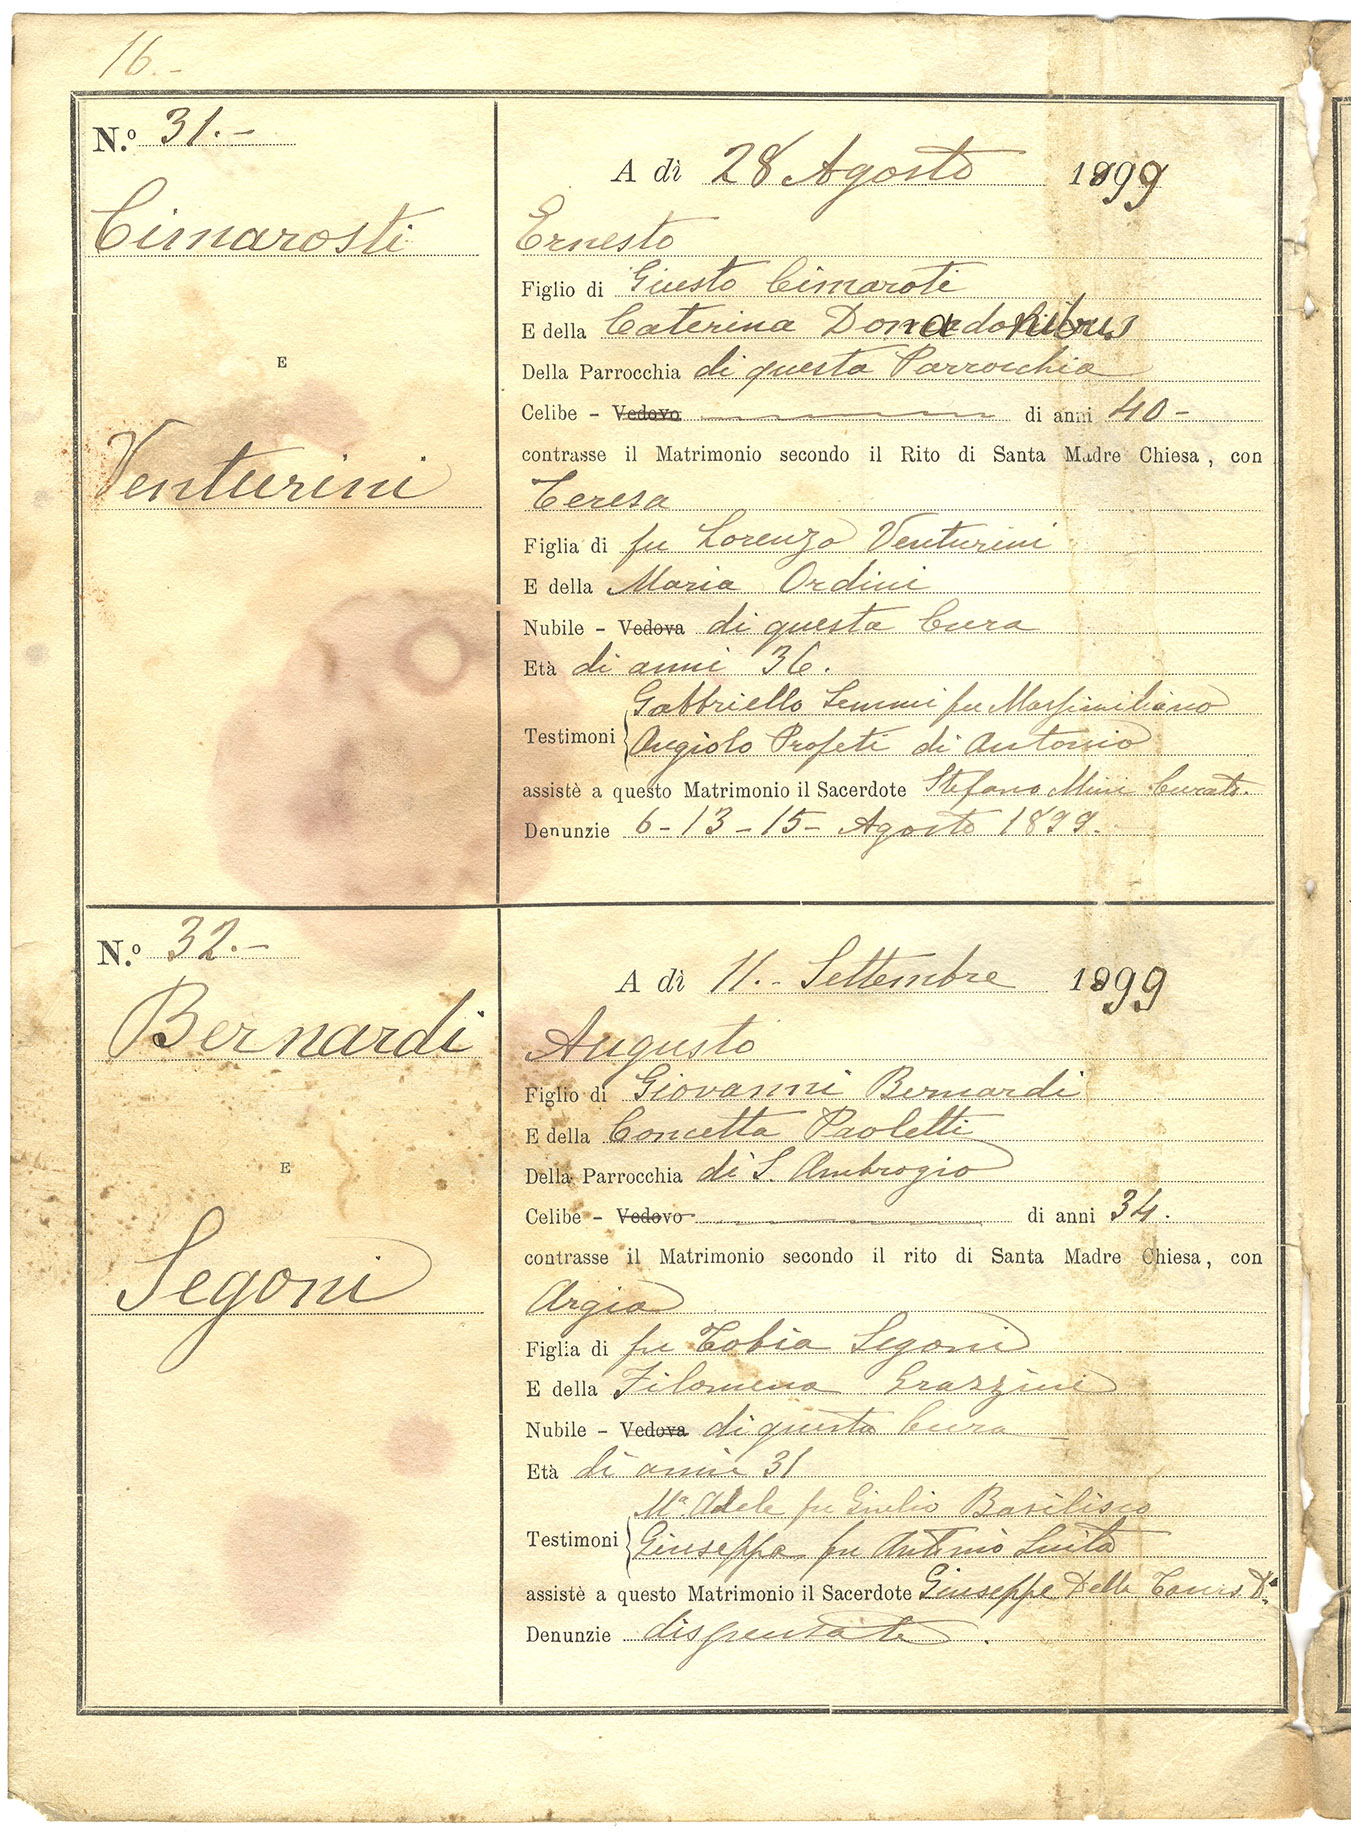 16.-
N.º 31.-
Cimarosti
E
Venturini
A dì 28 Agosto 1899
Ernesto
Figlio di Giusto Cimaroti
E della Caterina
Della Parrocchia di questa Parrocchia
Celibe - Vedovo di anni 40-
contrasse il Matrimonio secondo il Rito di Santa Madre Chiesa, con
Teresa
Figlia di fu Lorenzo Venturini
E della Maria Ordini
Nubile - Vedova di questa Cura
Età di anni 36.
Gabbriello Lemmi fu Massimiliano
Testimoni
Angiolo Profeti di Antonio
assistè a questo Matrimonio il Sacerdote Stefano Mini Curato.
Denunzie 6-13-15- Agosto 1899.
N.º 32.-
Bernardi
E
Segoni
A dì 11.- Settembre 1899
Augusto
Figlio di Giovanni Bernardi
E della Concetta Paoletti
Della Parrocchia di S. Ambrogio
Celibe - Vedovo di anni 34.
contrasse il Matrimonio secondo il rito di Santa Madre Chiesa, con
Argia
Figlia di fu Tobia Segoni
E della Filomena Grazzini
Nubile - Vedova di questa Cura
Età di anni 31
Mª Adele fu Giulio Basilisco
Testimoni
Giuseppa fu Antonio
assistè a questo Matrimonio il Sacerdote Giuseppe Della
Denunzie dispensate.